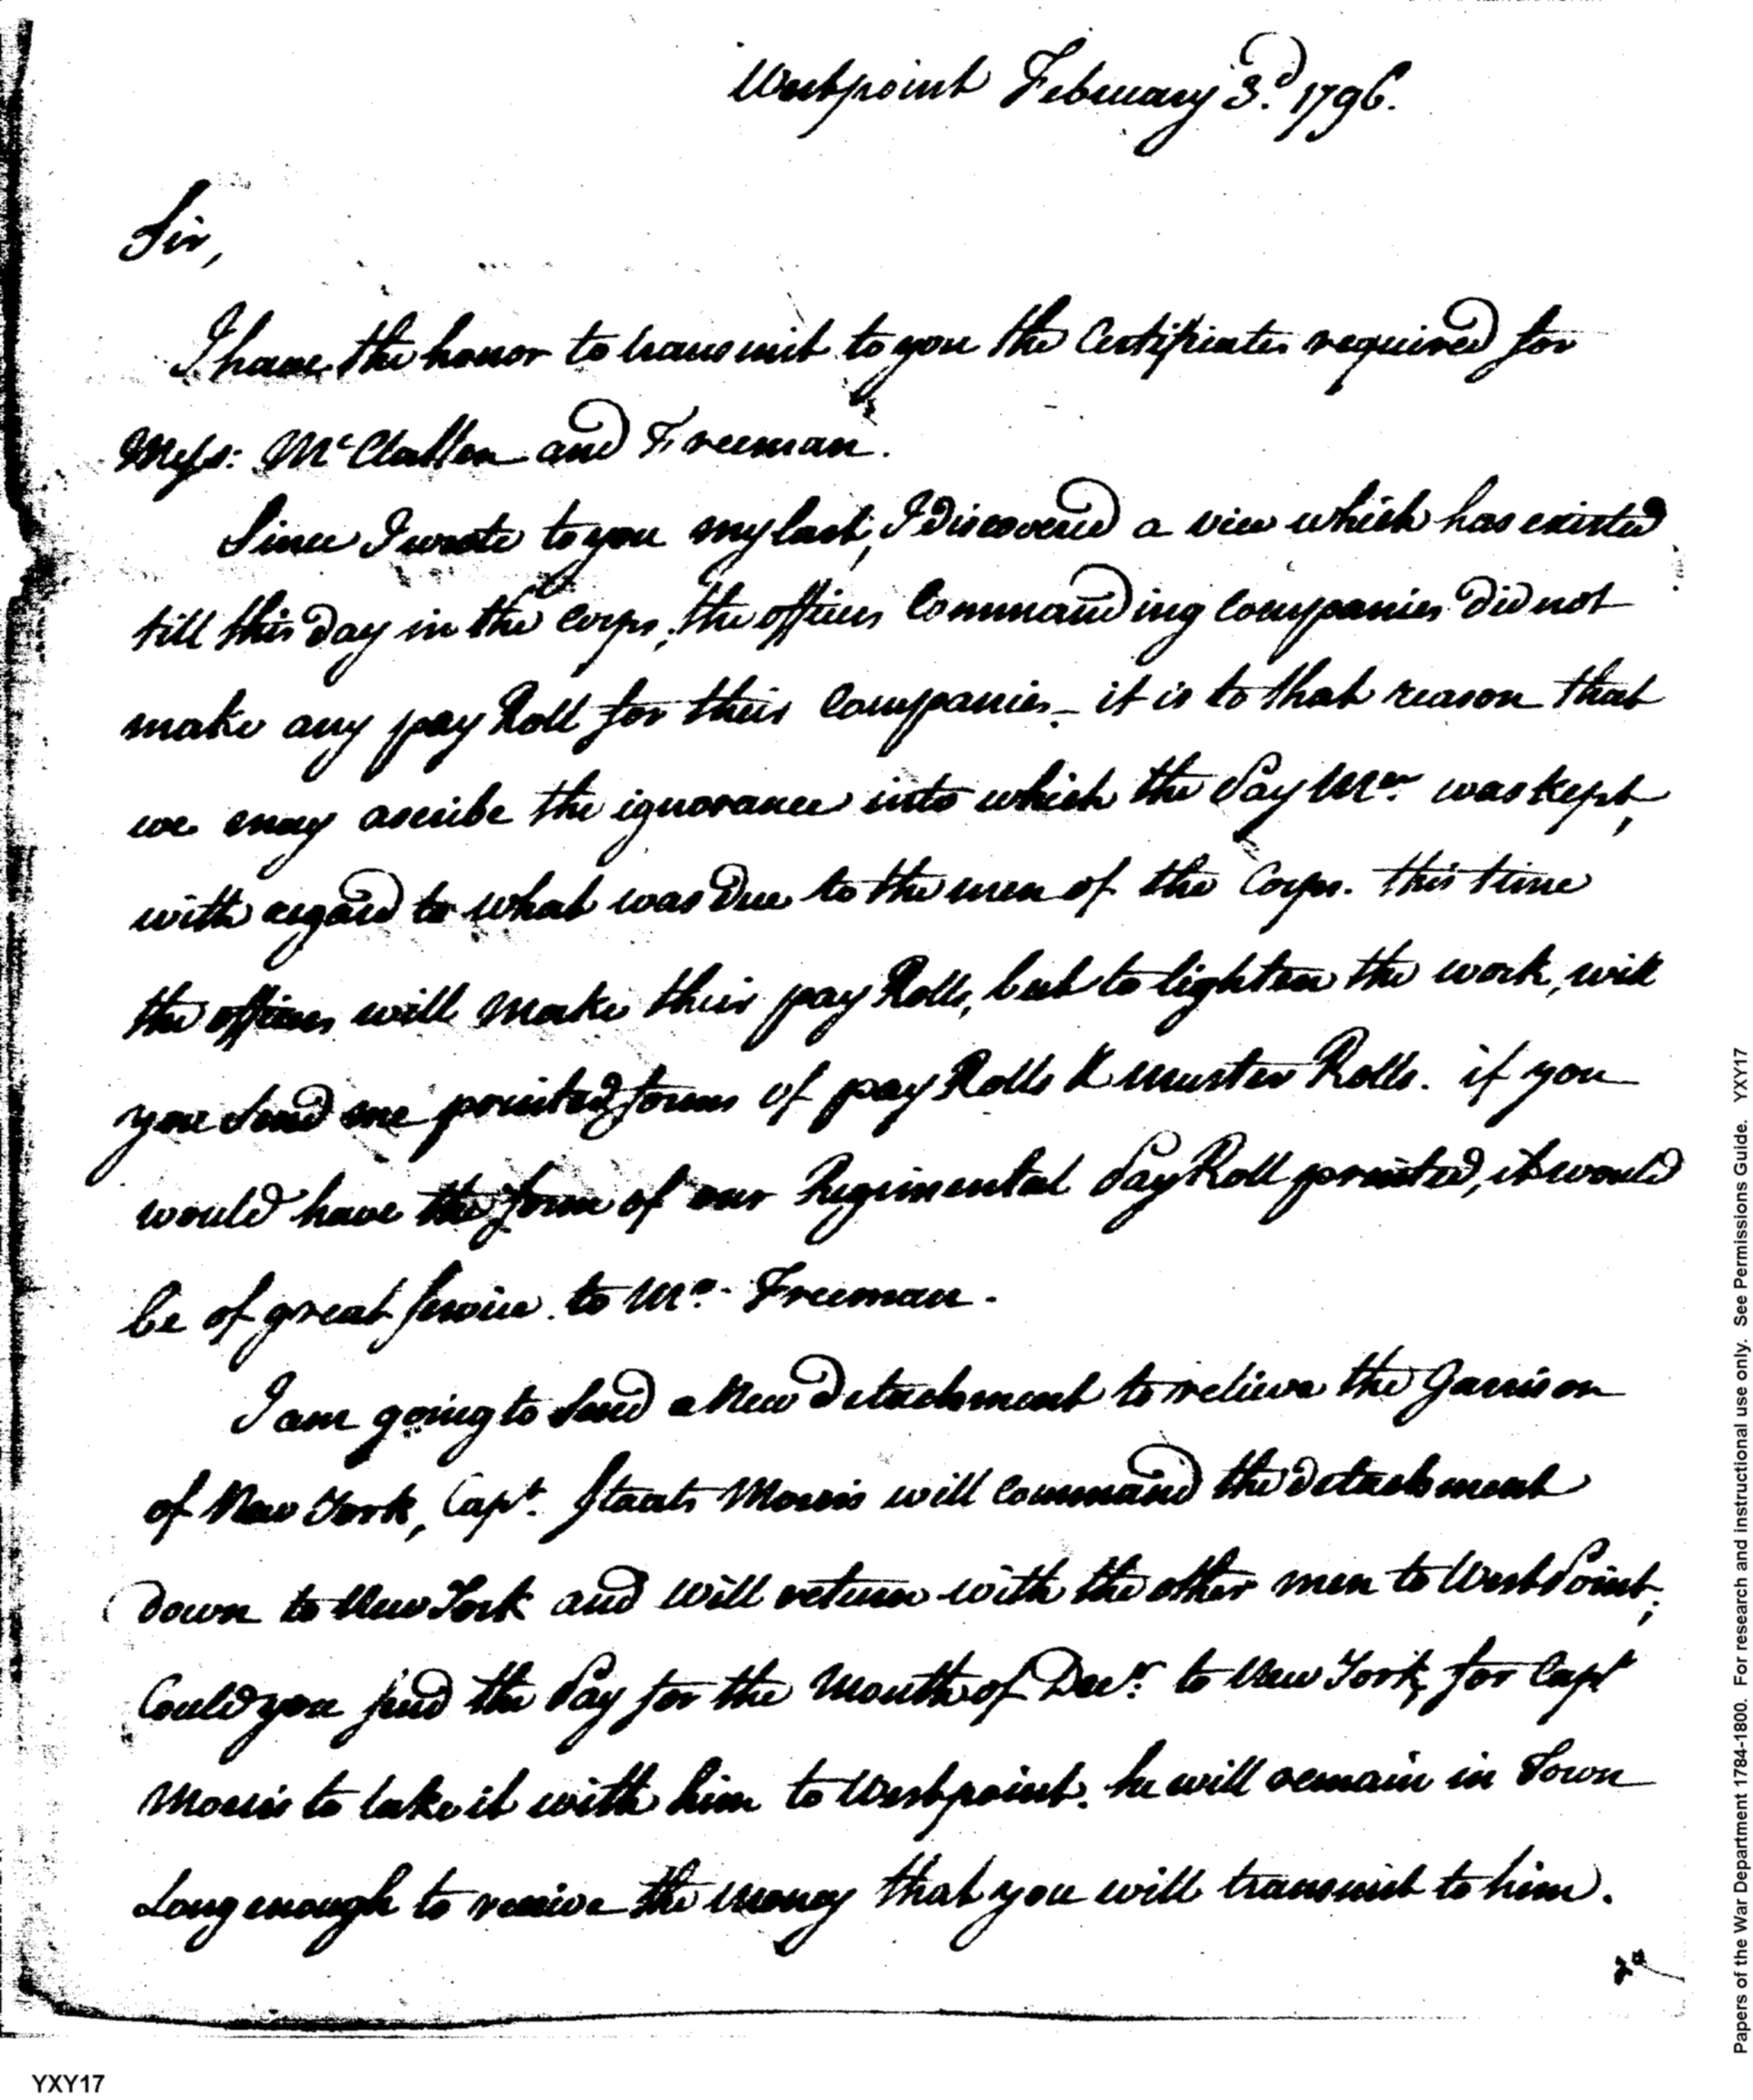 Westpoint February 3d. 1796.
Sir,
I have the honor to transmit to you the Certificates required for
Messs: McClallen and Freeman.
Since I wrote to you my last, I discovered a vice which has existed
till this day in the corps, the officers Commanding Companies did not
make any pay Roll for their Companies_ it is to that reason that
we may ascribe the ignorance into which the Pay Mr. was kept,
with regard to what was due to the men of the Corps. this time
the officers will make their pay Rolls, but to lighten the work, will
you send me printed forms of pay Rolls & muster Rolls. if you
would have the form of our Regimental Pay Roll printed, it would
be of great service to Mr. Freeman.
I am going to send a New detachment to relieve the Garrison
of New York, Capt. Staats Morris will command the detachment
down to New York and will return with the other men to West Point;
Could you send the Pay for the Month of Decr. to New York, for Capt
Morris to take it with him to Westpoint. he will remain in Town
Long enough to receive the money that you will transmit to him.
Papers of the War Department 1784-1800. For research and instructional use only. See Permissions Guide. YXY17
YXY17